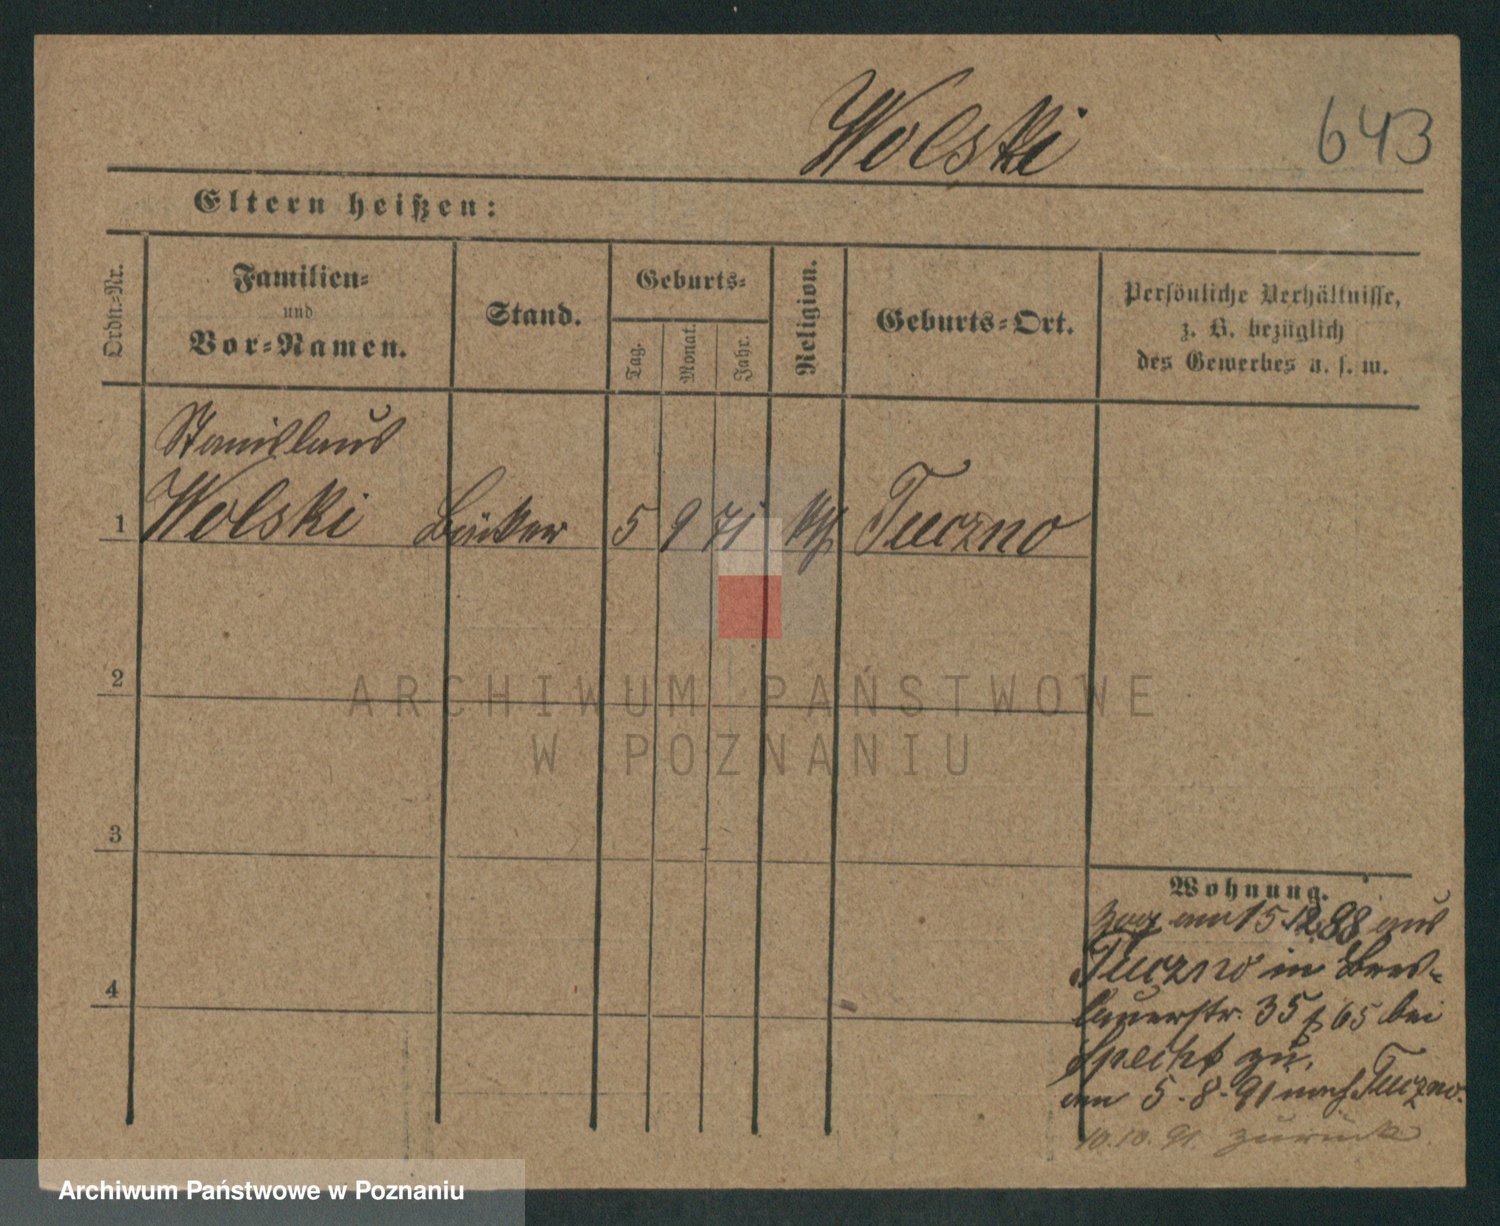 Wolski
643
Eltern heißen:
Ordn.-Nr.
Familien-
und
Vor-Namen.
Stand.
Geburts-
Tag.
Monat.
Jahr.
Religion.
Geburts-Ort.
Persönliche Verhältnisse,
z. B. bezüglich
des Gewerbes u. s. w.
Stanislaus
1 Wolski Bäcker 5 9 71 kth Tuczno
2
3
4
Wohnung.
zog am 15.12.88 aus
Tuczno in Bres-
lauerstr. 35 f 65 bei
Specht zu.
am 5.8.91 nach Tuczno.
10.10.91 zurück
ARCHIWUM PAŃSTWOWE
W POZNANIU
Archiwum Państwowe w Poznaniu